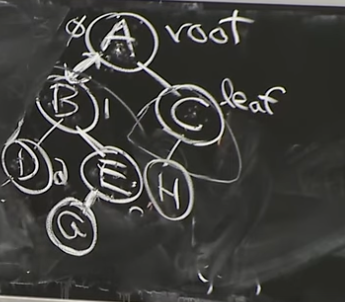 A root
B 1 C leaf
D d E H
G